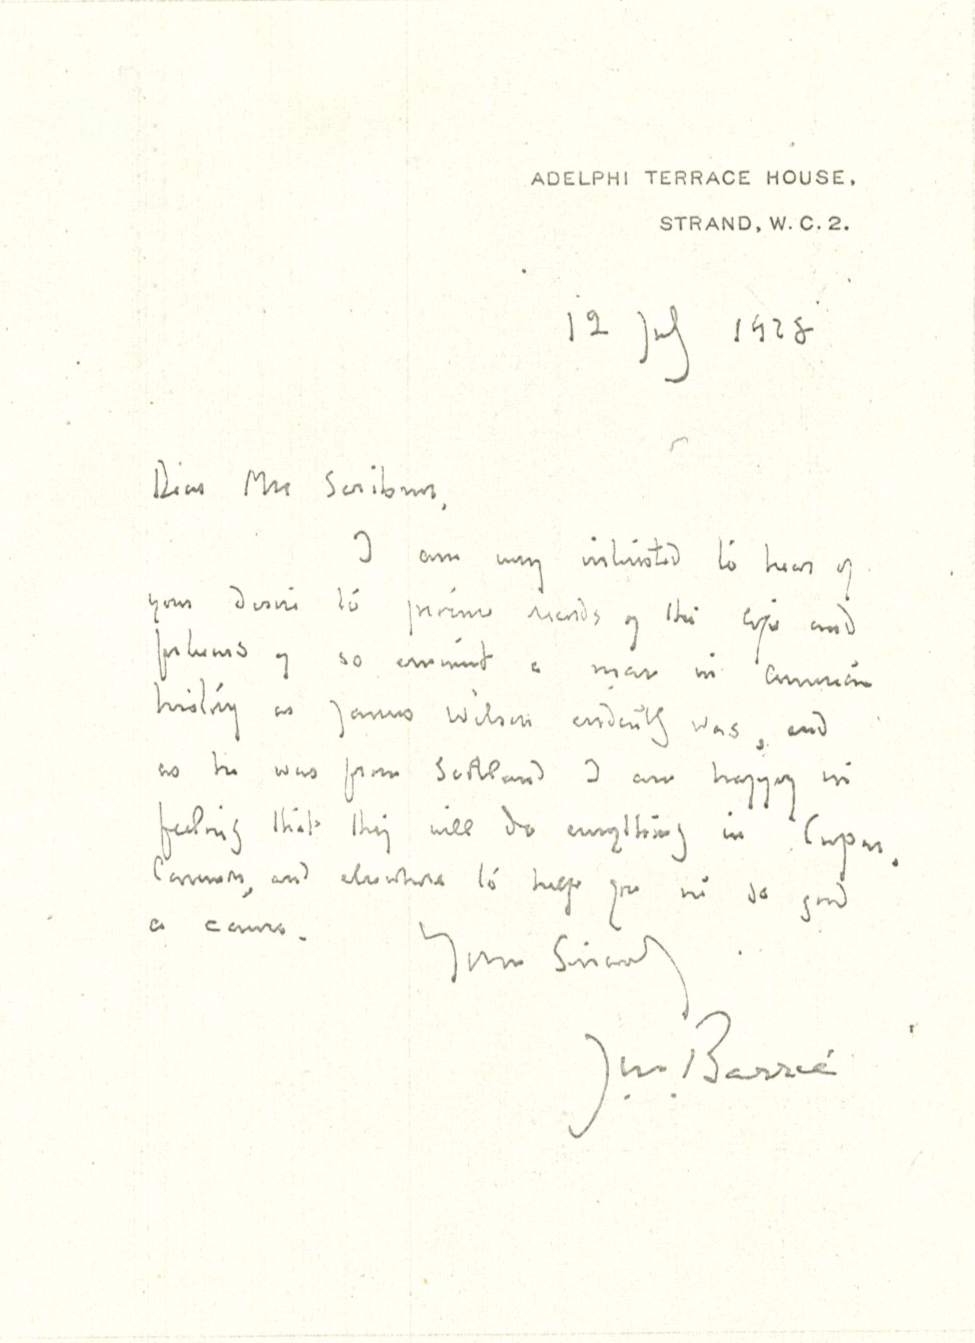 ADELPHI TERRACE HOUSE,
STRAND, W. C. 2.
12 July 1928
Dear Mrs Scribner,
I am very interested to hear of
your desire to procure records of the life and
of so eminent a man in American
history as James Wilson evidently was, and
as he was from Scotland I am happy in
feeling that they will do everything in Cupar.
and elsewhere to help you in so good
a cause.
Yours Sincerely
J. M. Barrie